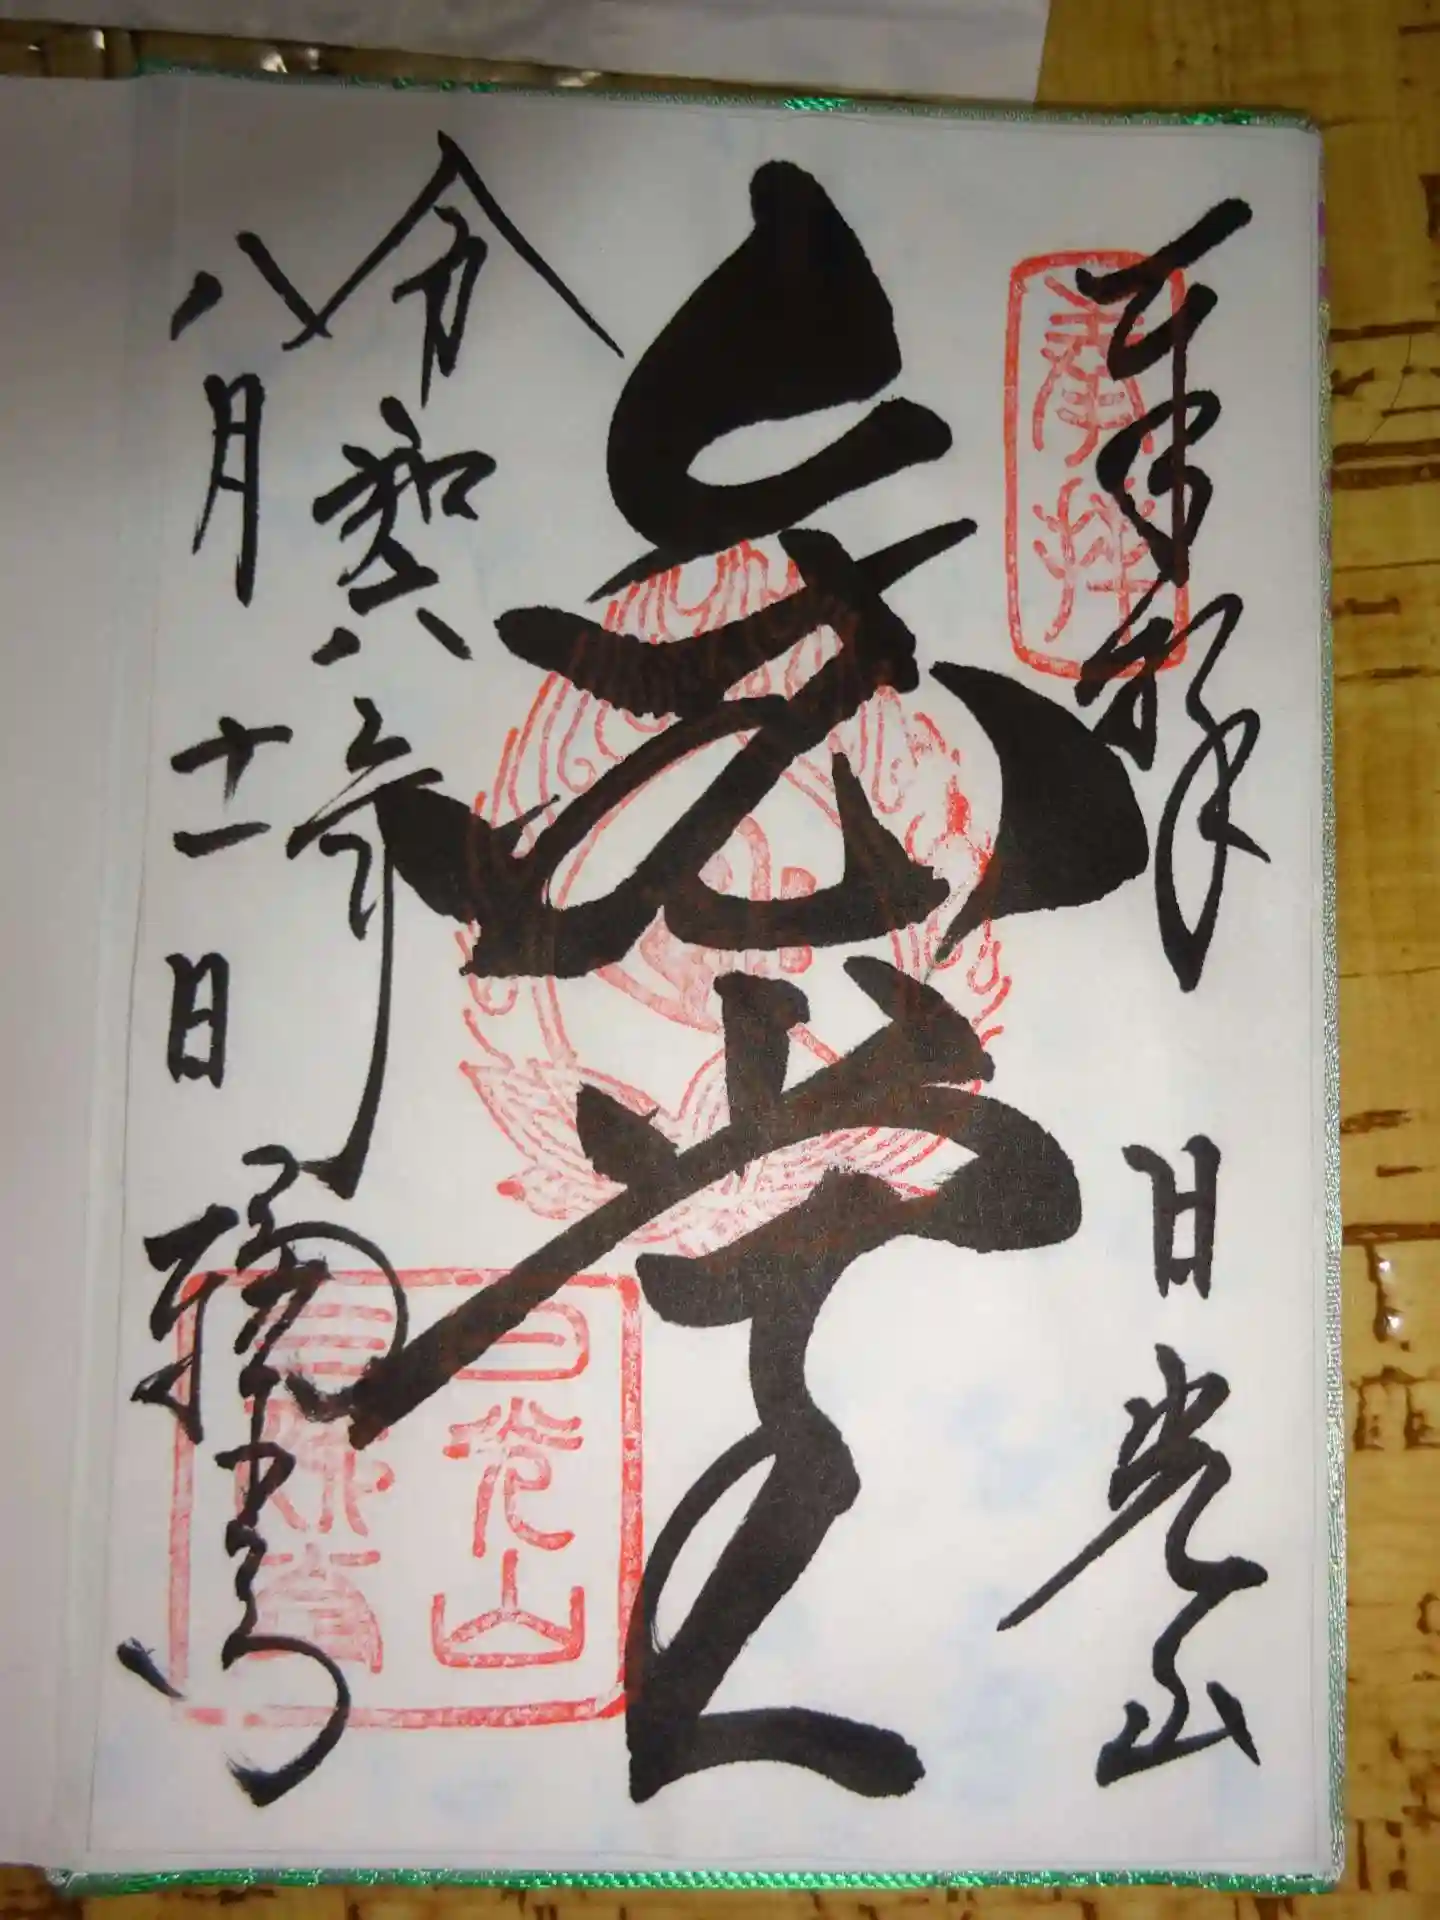 奉拝　日光山
奉拝
堂
令和六年
八月十一日　輪王寺
日光山